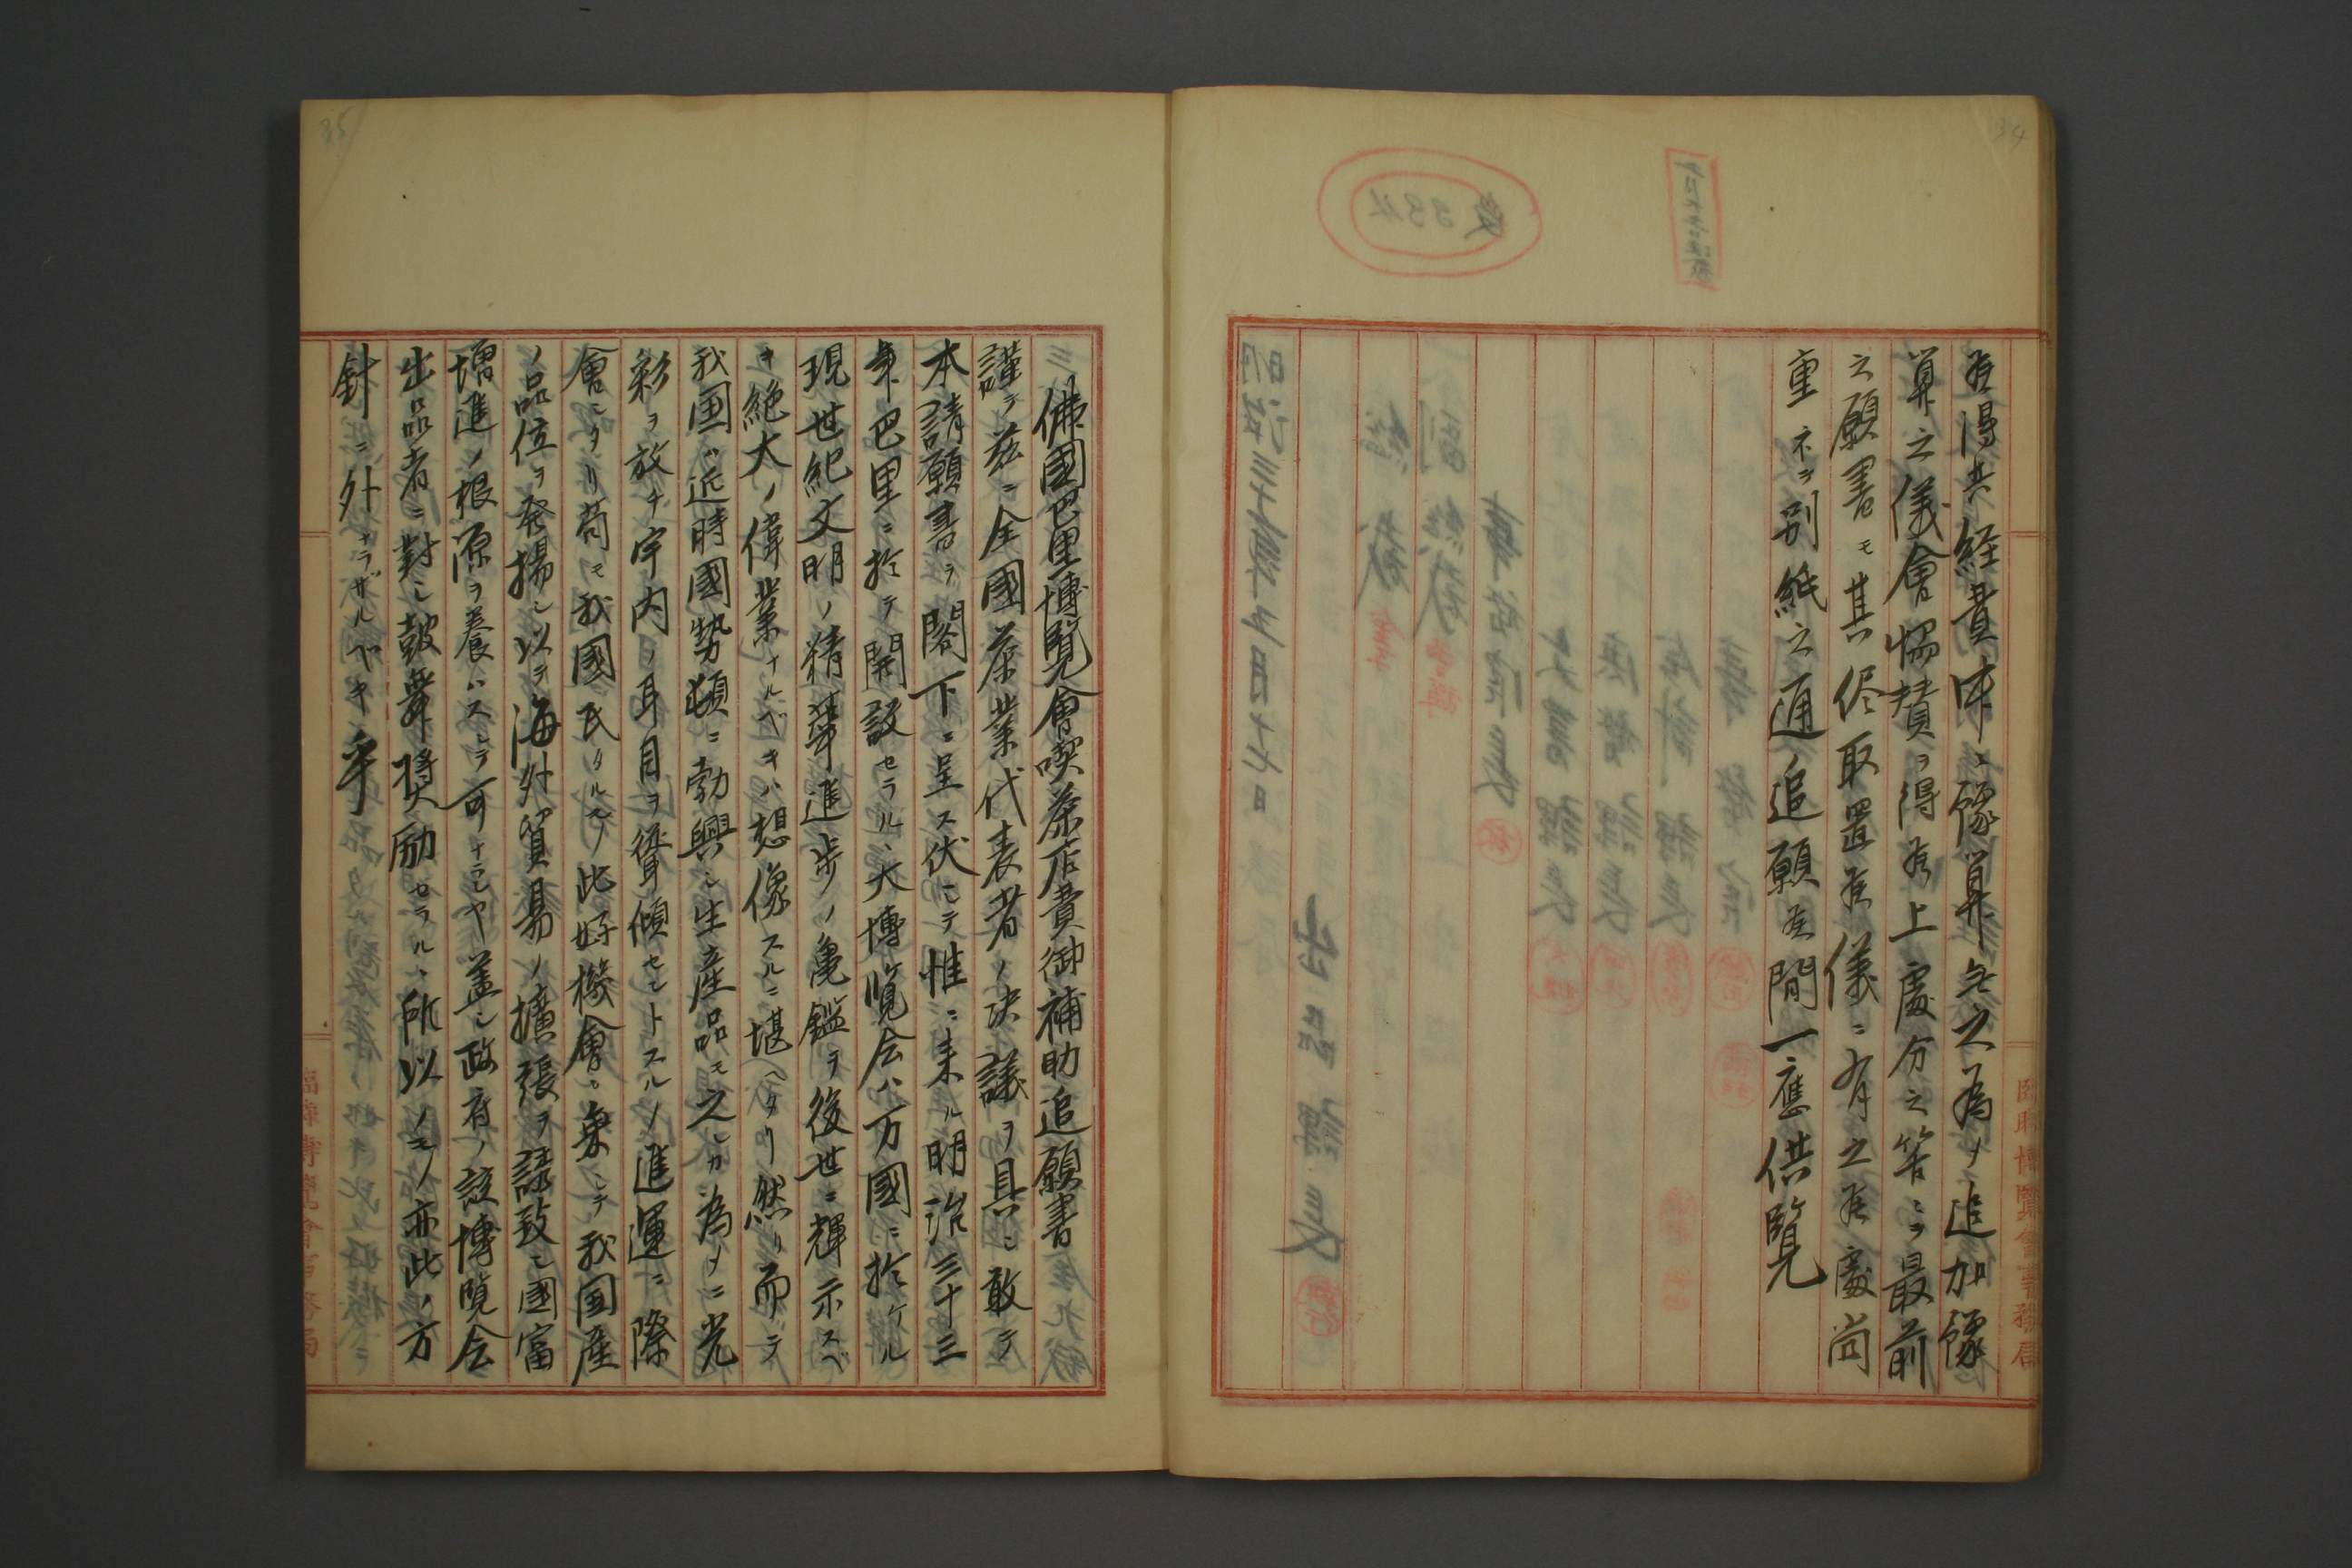 34
候得共経費中ニ豫算無之為メ追加豫
算之儀會協賛ヲ得候上處分之筈ニヨ最前
之願書モ其侭取置候儀ニ有之候處尚
重ネテ別紙之通追願候間一應供覧
臨時博覧會事務局
35
佛國巴里博覧會喫茶店費御補助追願書
謹テ茲ニ全國茶業代表者ノ决議ヲ具シ敢テ
本請願書ヲ閣下ニ呈ス伏シテ惟ニ来ル明治三十三
年巴里ニ於テ開設セラルヽ大博覧会ハ万國ニ於ケル
現世紀文明ノ精華進歩ノ亀鑑ヲ後世ニ輝示スベ
キ絶大ノ偉業ナルベキハ想像スルニ堪ヘタリ然リ而シテ
我国ハ近時國勢頓ニ勃興シ生産品モ之レカ為メニ光
彩ヲ放チ宇内ノ耳目ヲ聳傾セントスルノ進運ニ際
會シタリ苟モ我國民タルモノ此好機會ニ乗シテ我国産
ノ品位ヲ発揚シ以テ海外貿易ノ擴張ヲ誘致シ國富
増進ノ根源ヲ養ハスシテ可ナランヤ盖シ政府ノ該博覧会
出品者ニ對シ鼓舞奨励セラルヽ所以ノモノ亦此ノ方
針ニ外ナラザルベキ乎